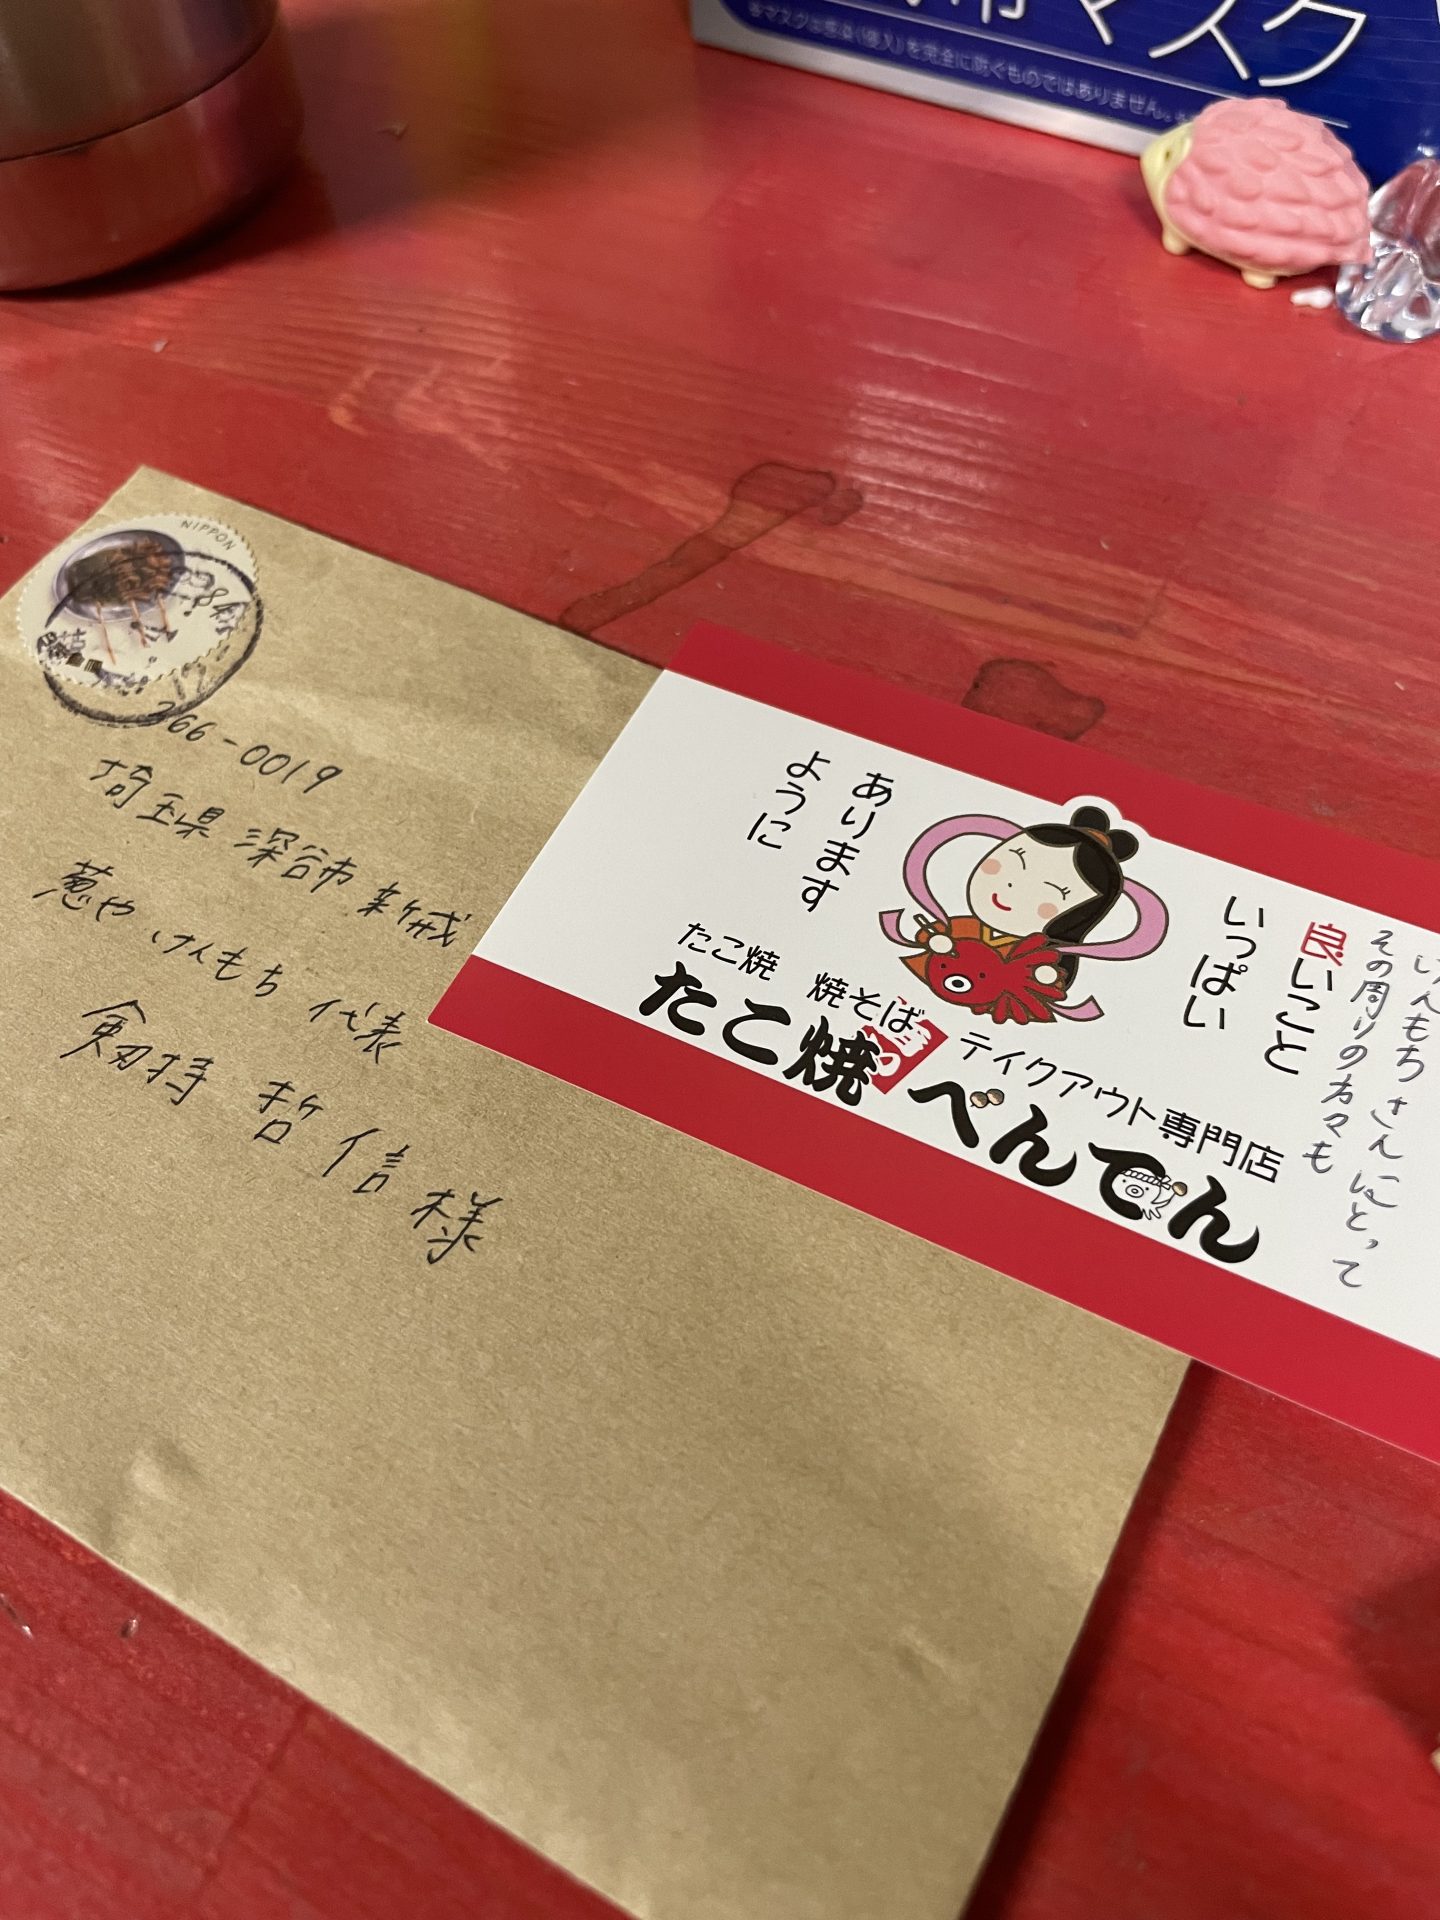 市マスク
本マスクは感染(侵入)を完全に防ぐものではありません。
NIPPON
84
366-0019
埼玉県 深谷市 新戒
葱や けんもち 代表
剣持 哲信 様
けんもちさんにとって
その周りの方々も
良いこと
いっぱい
あります
ように
たこ焼 焼そば テイクアウト専門店
たこ焼 べんてん